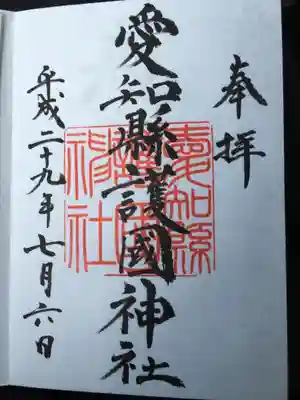 奉拝
愛知縣護國神社
愛知縣護國神社
平成二十九年七月六日